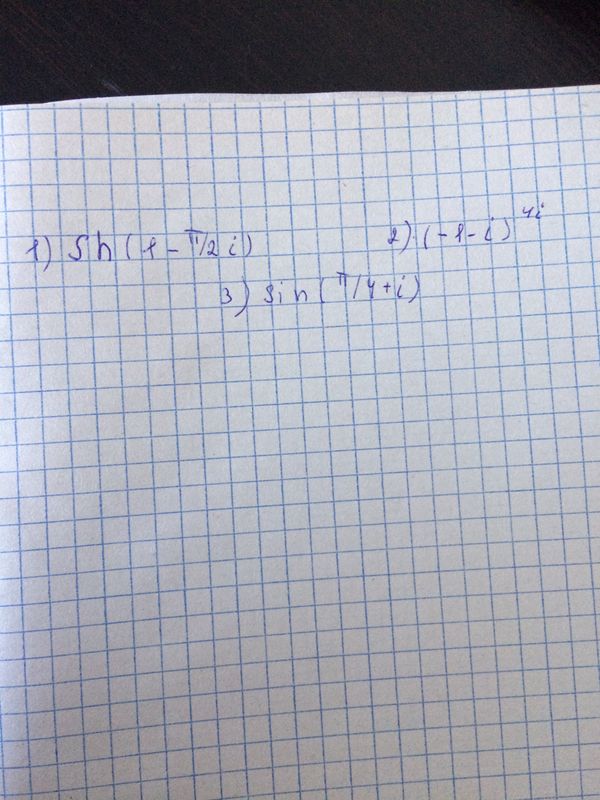 1) Sh(1 - π/2 i) 2) (-1-i)^4i
3) sin(π/4+i)